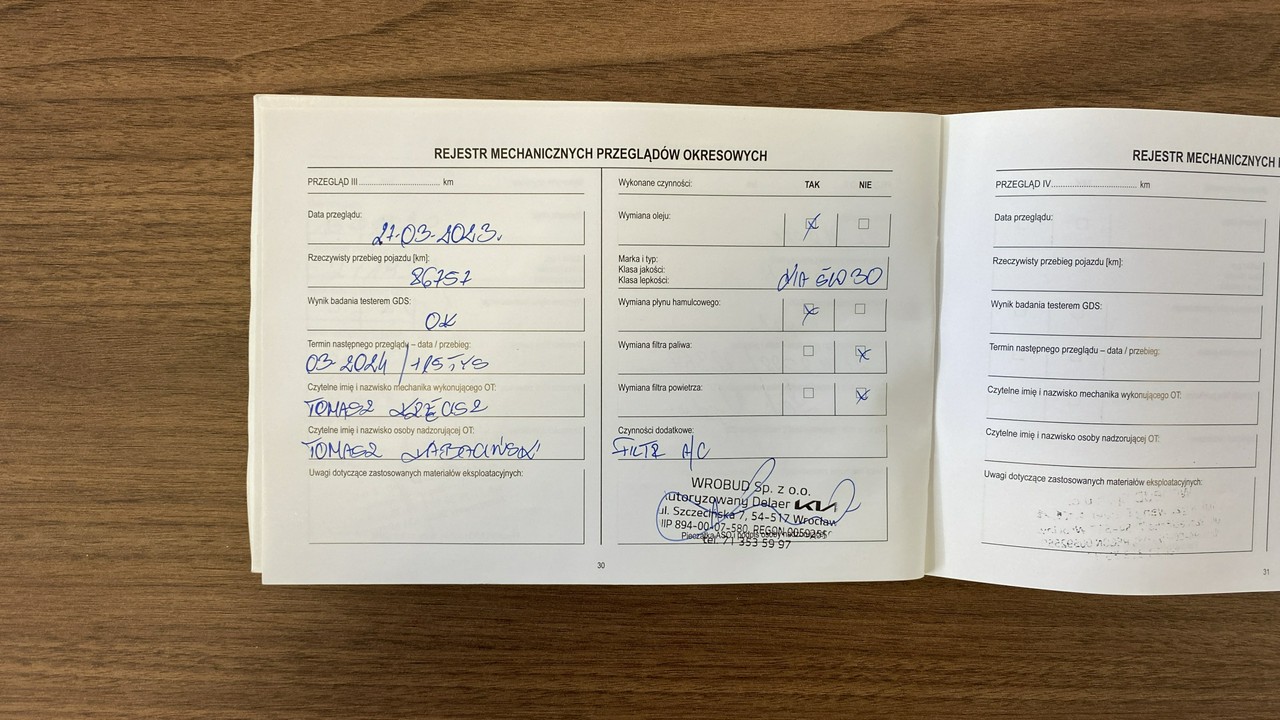 REJESTR MECHANICZNYCH PRZEGLĄDÓW OKRESOWYCH
PRZEGLĄD III.................................... km
Data przeglądu:
27-03-2023.
Rzeczywisty przebieg pojazdu [km]:
86757
Wynik badania testerem GDS:
OK
Termin następnego przeglądu – data / przebieg:
03-2024 /
Czytelne imię i nazwisko mechanika wykonującego OT:
TOMASZ
Czytelne imię i nazwisko osoby nadzorującej OT:
TOMASZ
Uwagi dotyczące zastosowanych materiałów eksploatacyjnych:
Wykonane czynności: TAK NIE
Wymiana oleju:
Marka i typ:
Klasa jakości:
Klasa lepkości:
30
Wymiana płynu hamulcowego:
Wymiana filtra paliwa:
Wymiana filtra powietrza:
Czynności dodatkowe:
FILTR A/C
WROBUD Sp. z o.o.
utoryzowany Delaer KIA
ul. Szczecińska 7, 54-517 Wrocław
IIP 894-00-07-580, REGON
Pieczątka ASO i podpis osoby nadzorującej
tel. 71 353 59 97
30
REJESTR MECHANICZNYCH
PRZEGLĄD IV.................................... km
Data przeglądu:
Rzeczywisty przebieg pojazdu [km]:
Wynik badania testerem GDS:
Termin następnego przeglądu – data / przebieg:
Czytelne imię i nazwisko mechanika wykonującego OT:
Czytelne imię i nazwisko osoby nadzorującej OT:
Uwagi dotyczące zastosowanych materiałów eksploatacyjnych:
31